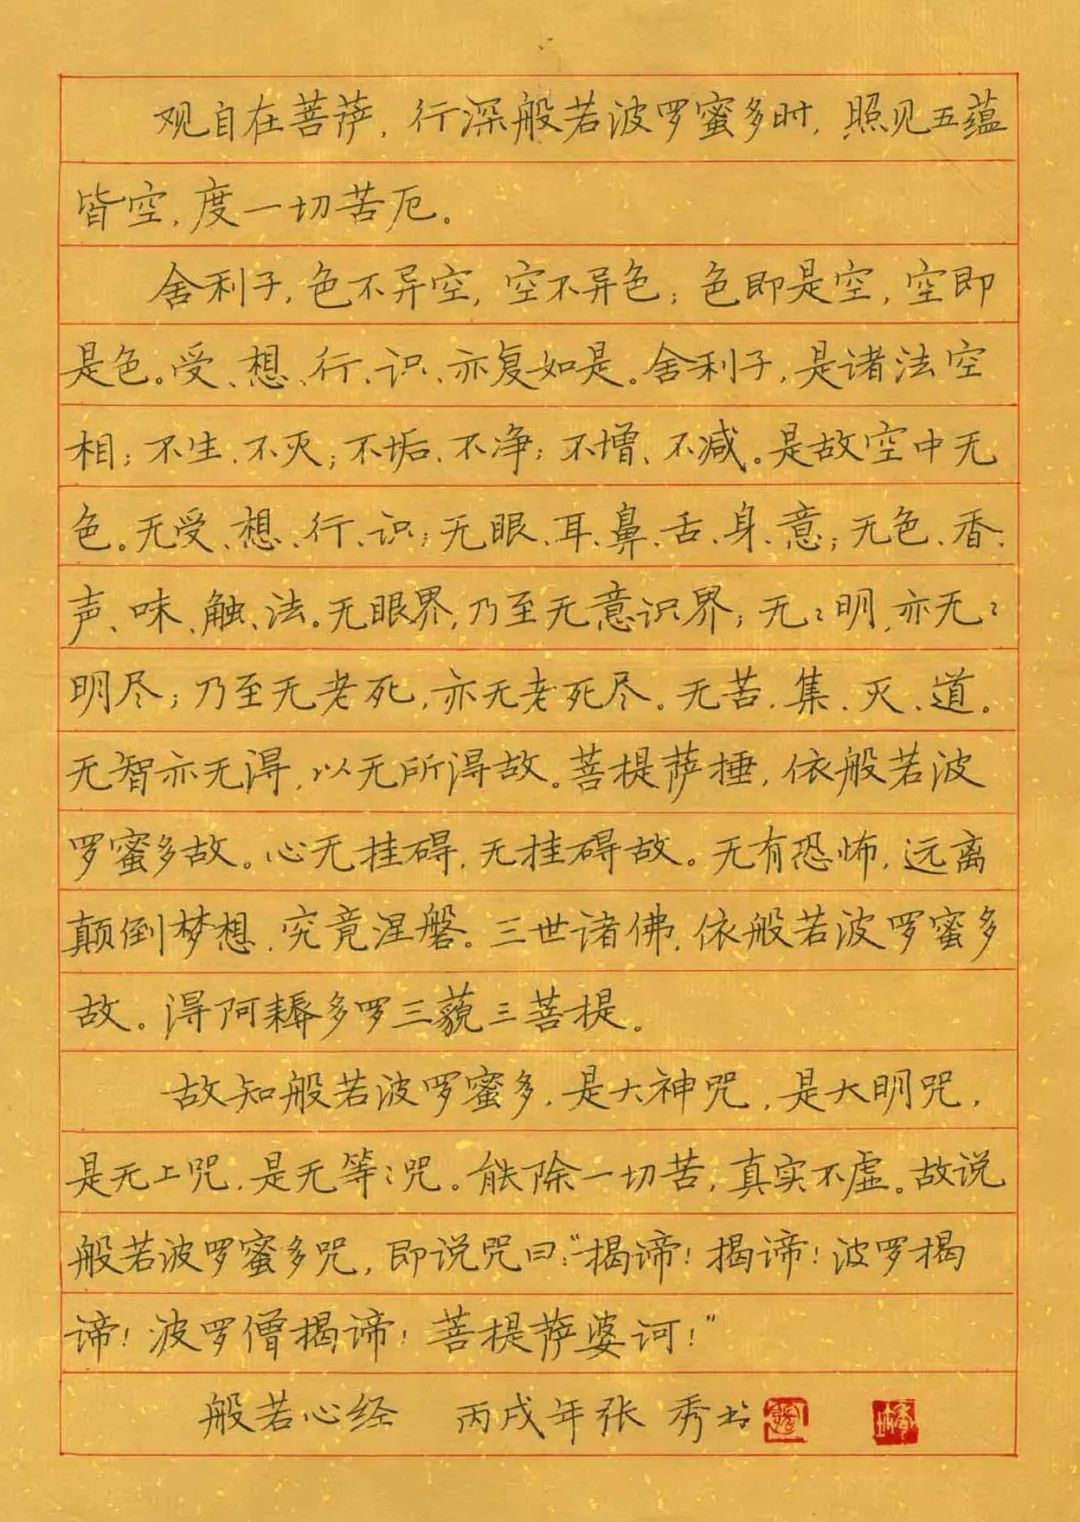 观自在菩萨，行深般若波罗蜜多时，照见五蕴
皆空，度一切苦厄。
舍利子，色不异空，空不异色；色即是空，空即
是色。受、想、行、识、亦复如是。舍利子，是诸法空
相；不生、不灭；不垢、不净；不增、不减。是故空中无
色。无受、想、行、识；无眼、耳、鼻、舌、身、意；无色、香、
声、味、触、法。无眼界，乃至无意识界；无〻明，亦无〻
明尽；乃至无老死，亦无老死尽。无苦、集、灭、道。
无智亦无得，以无所得故。菩提萨捶，依般若波
罗蜜多故。心无挂碍，无挂碍故。无有恐怖，远离
颠倒梦想，究竟涅磐。三世诸佛，依般若波罗蜜多
故。得阿耨多罗三藐三菩提。
故知般若波罗蜜多，是大神咒，是大明咒，
是无上咒，是无等〻咒。能除一切苦，真实不虚。故说
般若波罗蜜多咒，即说咒曰：“揭谛！揭谛！波罗揭
谛！波罗僧揭谛！菩提萨婆诃！”
般若心经 丙戌年张 秀书